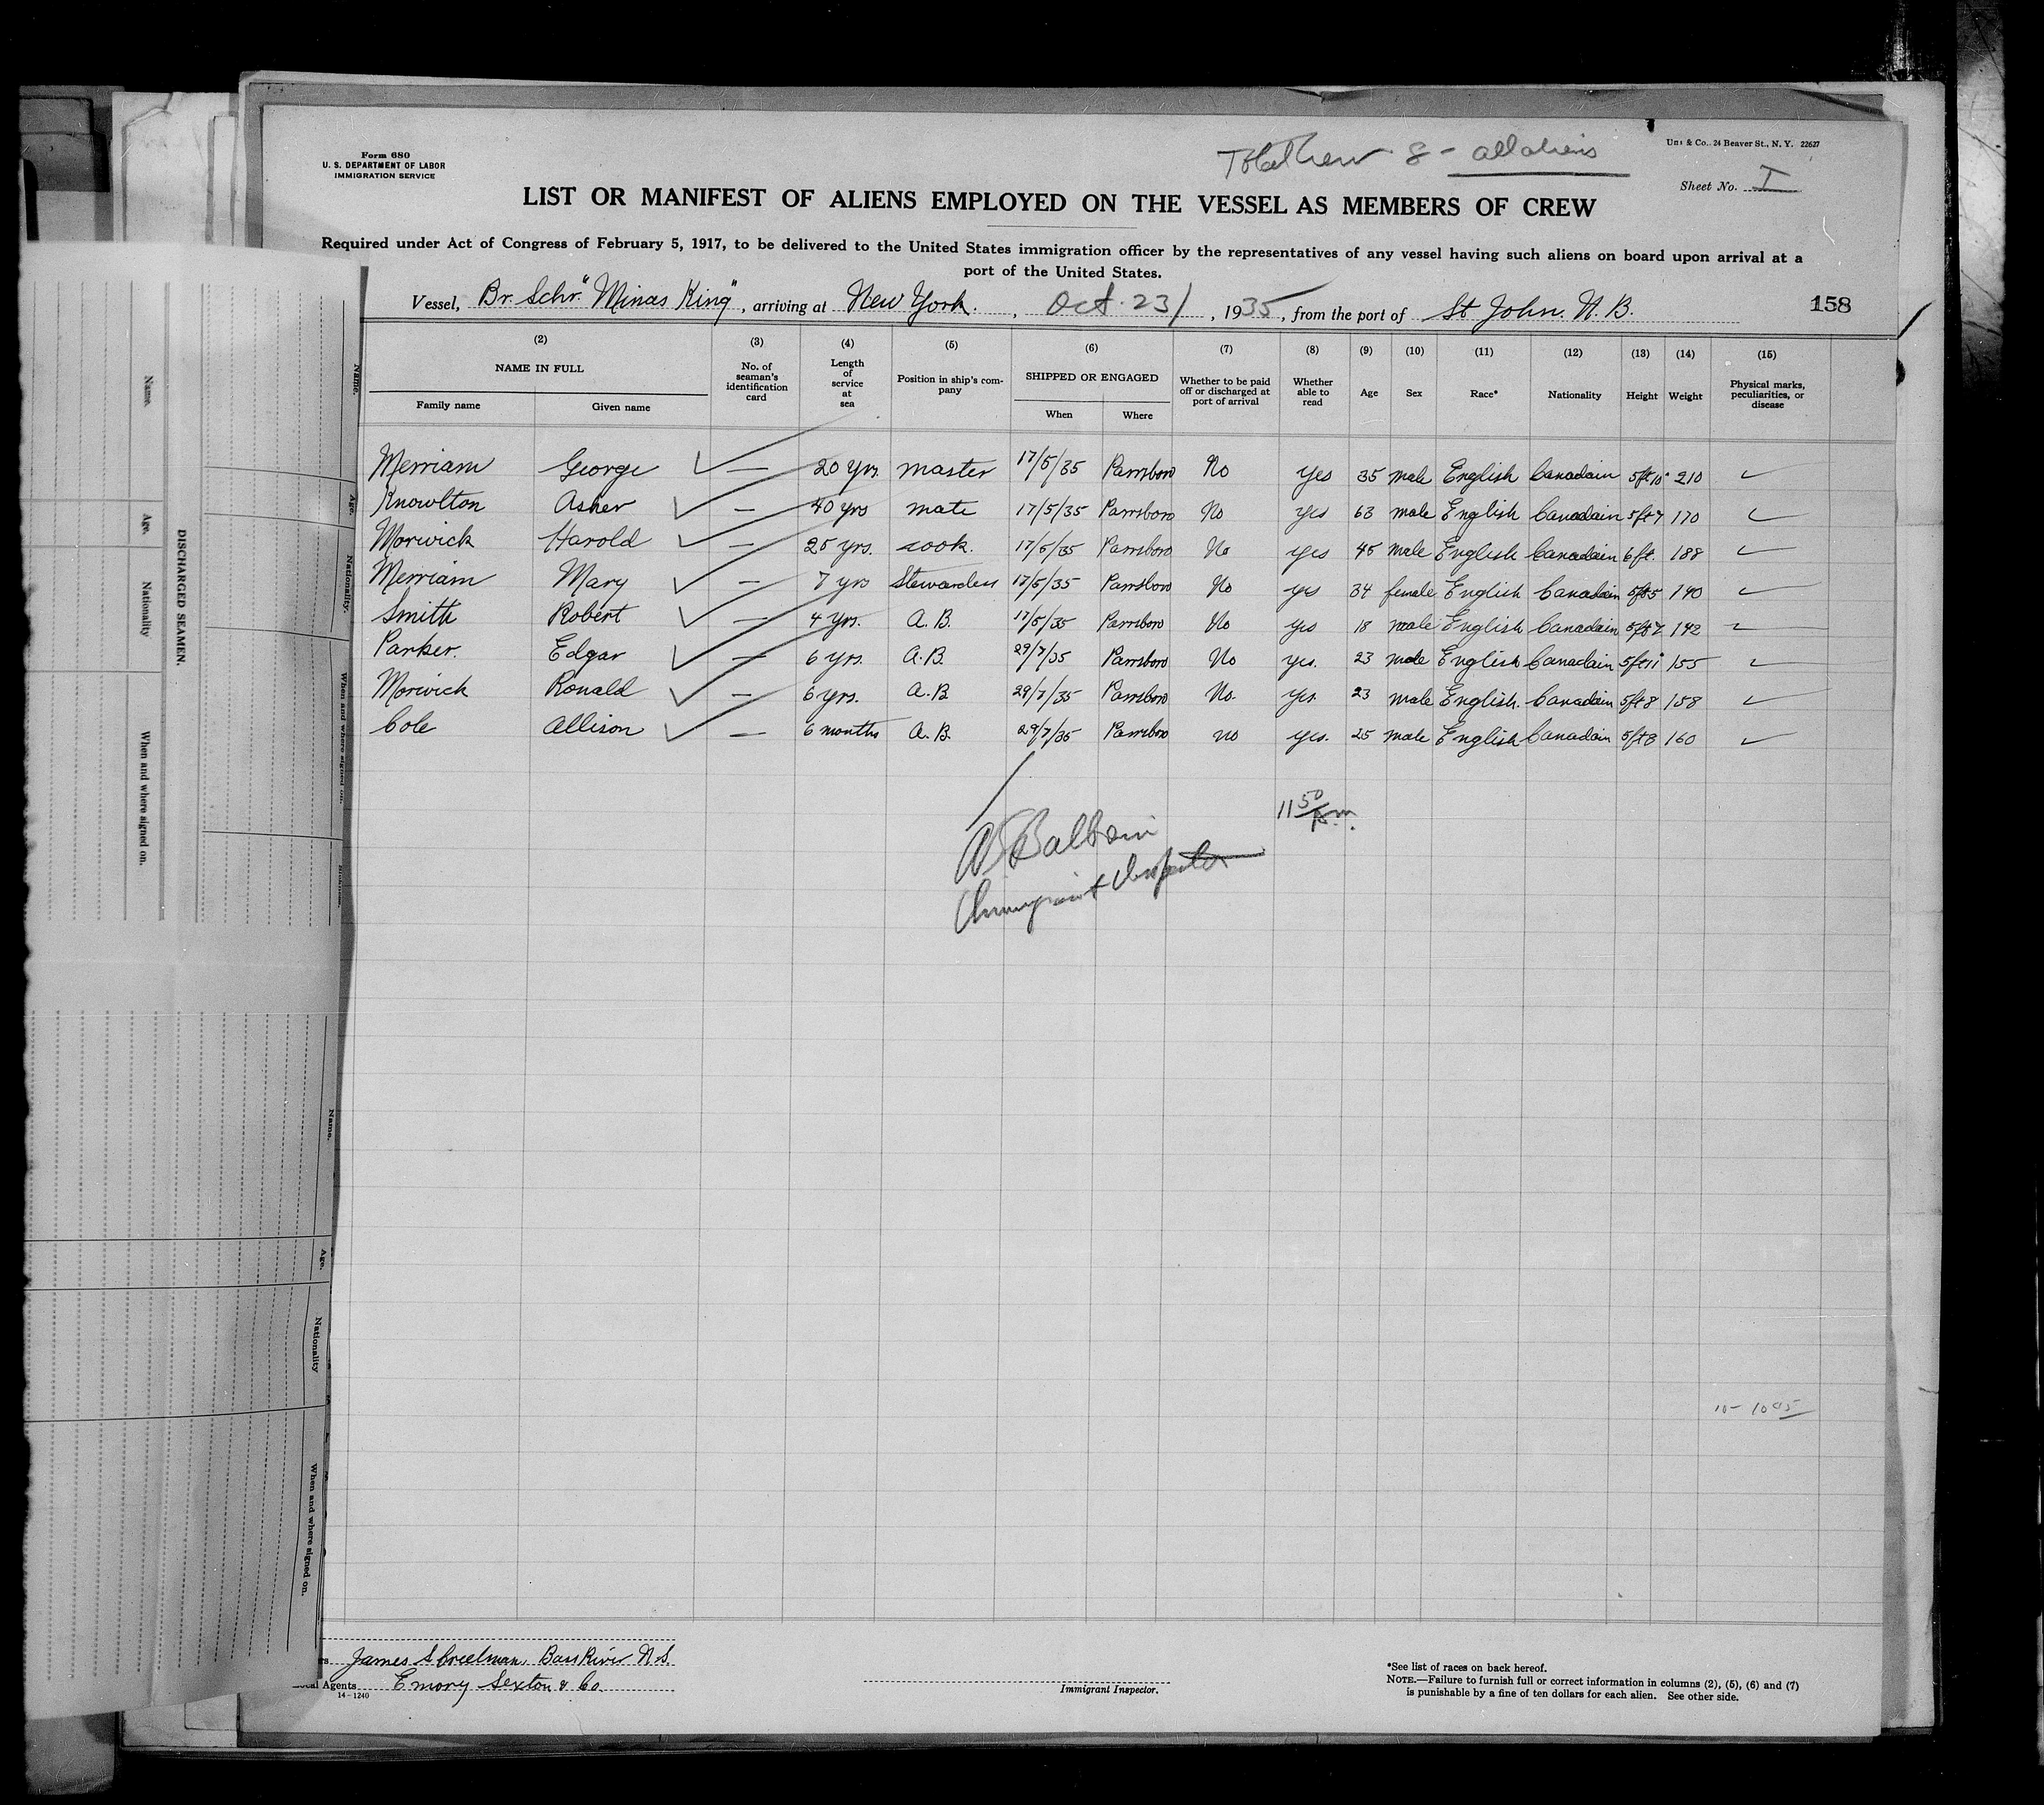 Form 680
U. S. DEPARTMENT OF LABOR
IMMIGRATION SERVICE
Total Crew 8 - all aliens
& Co., 24 Beaver St., N. Y. 22627
Sheet No. I
LIST OR MANIFEST OF ALIENS EMPLOYED ON THE VESSEL AS MEMBERS OF CREW
Required under Act of Congress of February 5, 1917, to be delivered to the United States immigration officer by the representatives of any vessel having such aliens on board upon arrival at a
port of the United States.
Vessel, Br. Schr. "Minas King", arriving at New York. , Oct. 23/ , 1935, from the port of St John. N. B. 158
(2) (3) (4) (5) (6) (7) (8) (9) (10) (11) (12) (13) (14) (15)
NAME IN FULL No. of seaman's identification card Length of service at sea Position in ship's company SHIPPED OR ENGAGED Whether to be paid off or discharged at port of arrival Whether able to read Age Sex Race* Nationality Height Weight Physical marks, peculiarities, or disease
Family name Given name When Where
Merriam George ✓ — 20 yrs. master 17/5/35 Parrsboro No yes 35 male English Canadain 5ft10" 210 ✓
Knowlton Asher ✓ — 40 yrs mate 17/5/35 Parrsboro No yes 63 male English Canadain 5ft7 170 ✓
Morwick Harold ✓ — 25 yrs. cook. 17/5/35 Parrsboro No yes 45 male English Canadain 6ft. 188 ✓
Merriam Mary ✓ — 7 yrs Stewardess 17/5/35 Parrsboro No yes 34 female English Canadain 5ft5 140 ✓
Smith Robert ✓ — 4 yrs. A. B. 17/5/35 Parrsboro No yes 18 male English Canadain 5ft7 142 ✓
Parker. Edgar ✓ — 6 yrs. A. B. 29/7/35 Parrsboro No yes. 23 male English Canadain 5ft11" 155 ✓
Morwick Ronald ✓ — 6 yrs. A. B 29/7/35 Parrsboro No. yes. 23 male English. Canadain 5ft8 158 ✓
Cole Allison ✓ — 6 months A. B. 29/7/35 Parrsboro no yes. 25 male English Canadain 5ft8 160 ✓
11 50
Immigrant Inspector
James S Creelman, Bass River N. S.
Local Agents Emory Sexton & Co.
14-1240
Immigrant Inspector.
*See list of races on back hereof.
NOTE.—Failure to furnish full or correct information in columns (2), (5), (6) and (7)
is punishable by a fine of ten dollars for each alien. See other side.
DISCHARGED SEAMEN.
Name.
Age.
Nationality
When and where signed on.
Name.
Age.
Nationality.
When and where signed on.
Name.
Age.
Nationality
When and where signed on.